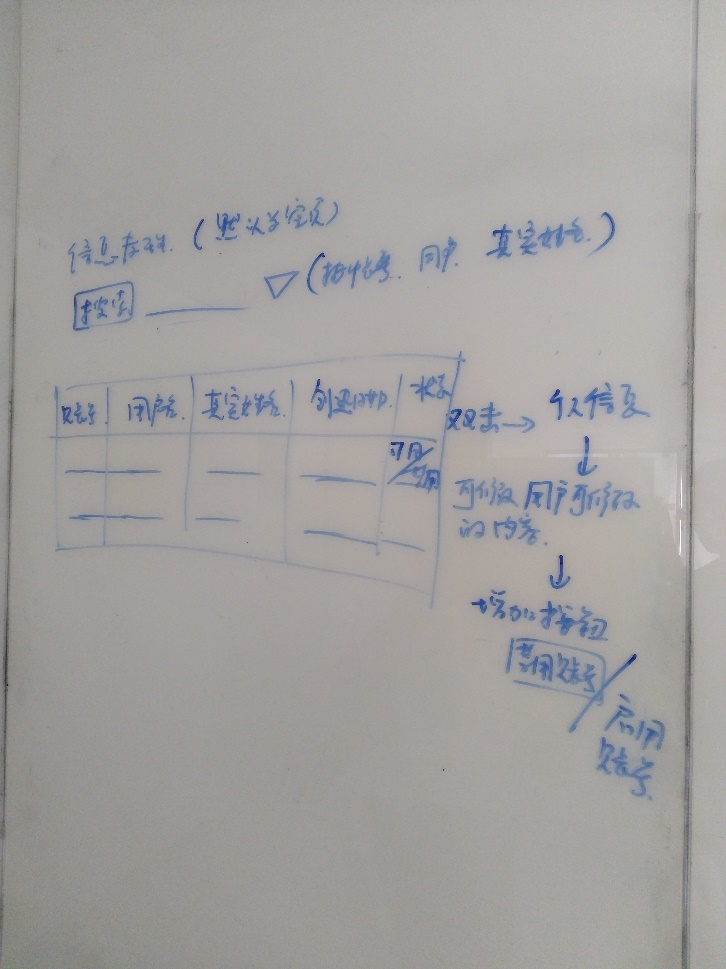 (默认为空页)
搜索 ▽(按账号. 用户. 真实姓名.)
账号 用户名 真实姓名. 创建时间. 状态
可用/禁用
双击→ 个人信息
↓
可修改用户可修改
的内容.
↓
增加按钮
禁用账号/启用
账号.